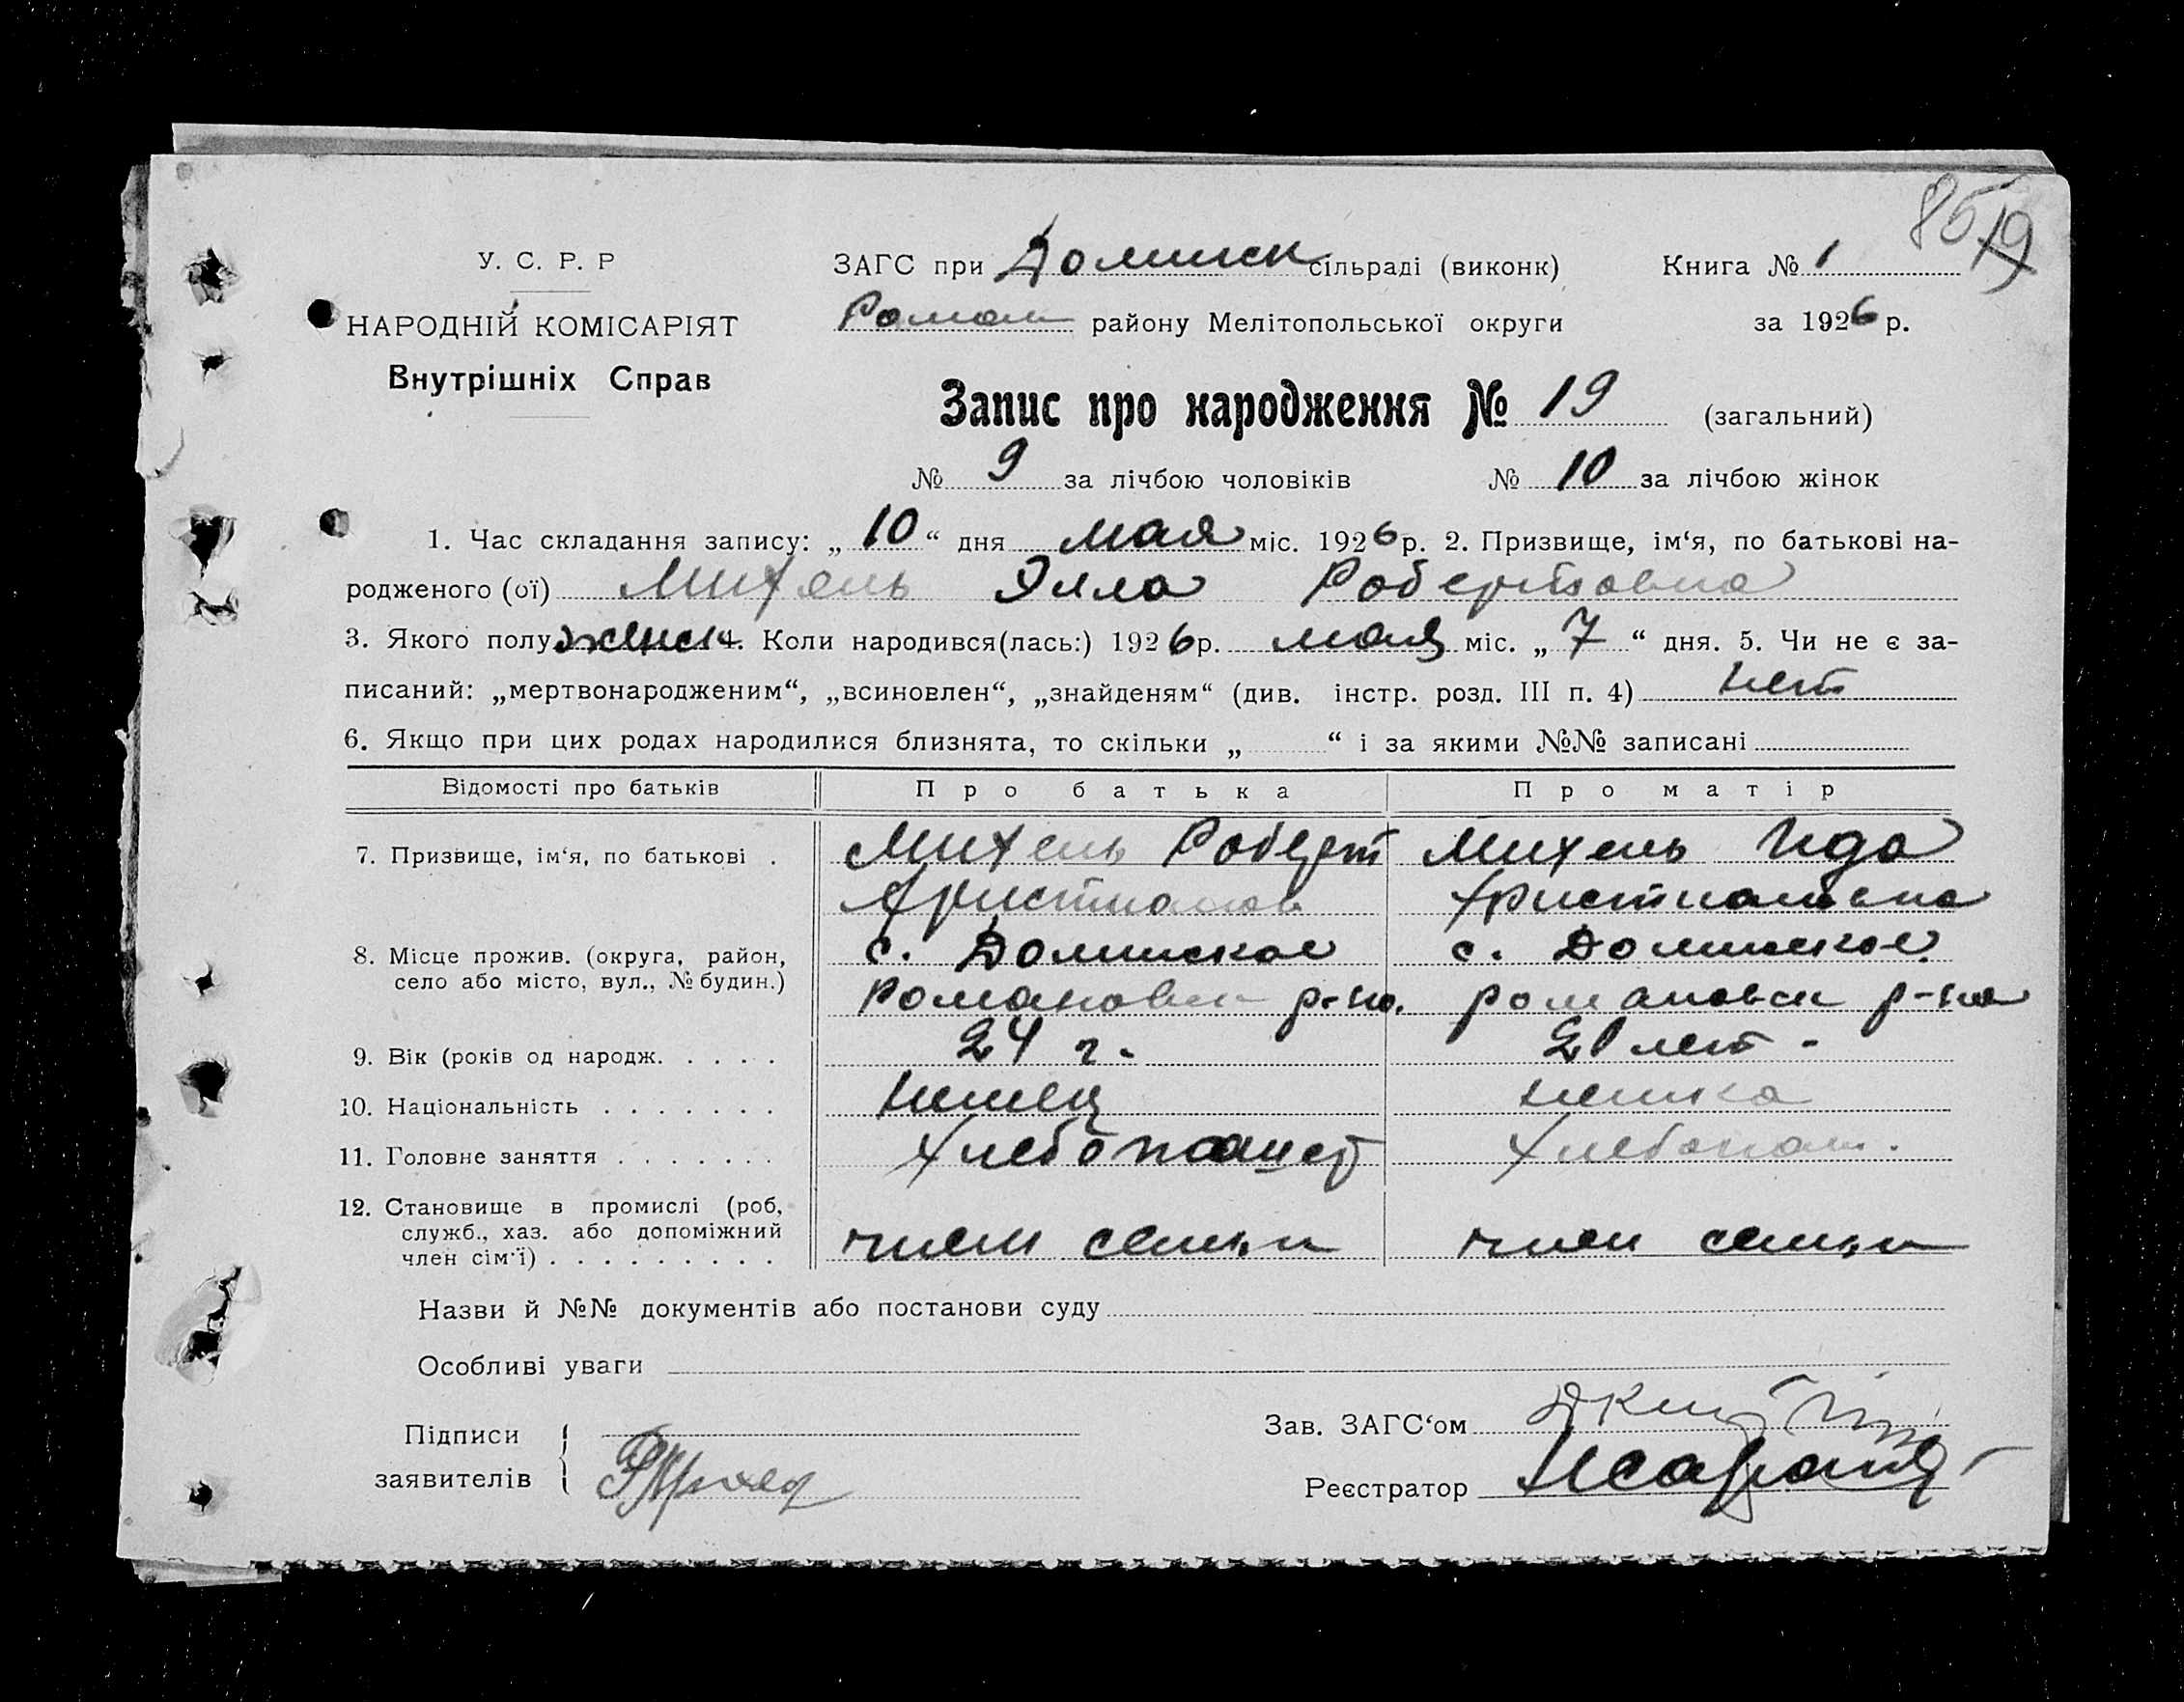 85 19
У. С. Р. Р
НАРОДНІЙ КОМІСАРІЯТ
Внутрішніх Справ
ЗАГС при Долинск сільраді (виконк)
Книга № 1
Роман району Мелітопольської округи
за 1926 р.
Запис про народження № 19 (загальний)
№ 9 за лічбою чоловіків № 10 за лічбою жінок
1. Час складання запису: „ 10 “ дня мая міс. 1926 р. 2. Призвище, ім‘я, по батькові на-
родженого (ої) Михель Элла Робертовна
3. Якого полу женск 4. Коли народився(лась:) 1926 р. мая міс. „ 7 “ дня. 5. Чи не є за-
писаний: „мертвонародженим“, „всиновлен“, „знайденям“ (див. інстр. розд. III п. 4) нет
6. Якщо при цих родах народилися близнята, то скільки „ “ і за якими №№ записані
Відомості про батьків Про батька Про матір
7. Призвище, ім‘я, по батькові . Михель Роберт Михель Ида
Христианов Христиановна
8. Місце прожив. (округа, район, с. Долинское с. Долинское
село або місто, вул., № будин.) Романовск р-на. Романовск р-на
9. Вік (років од народж. . . . . 24 г. 21 лет -
10. Національність . . . . . . . немец немка
11. Головне заняття . . . . . . . Хлебопашец Хлебопаш.
12. Становище в промислі (роб,
служб., хаз. або допоміжний
член сім‘ї) . . . . . . . . . член семьи член семьи
Назви й №№ документів або постанови суду
Особливі уваги
Підписи
заявителів
Зав. ЗАГС‘ом
Реєстратор